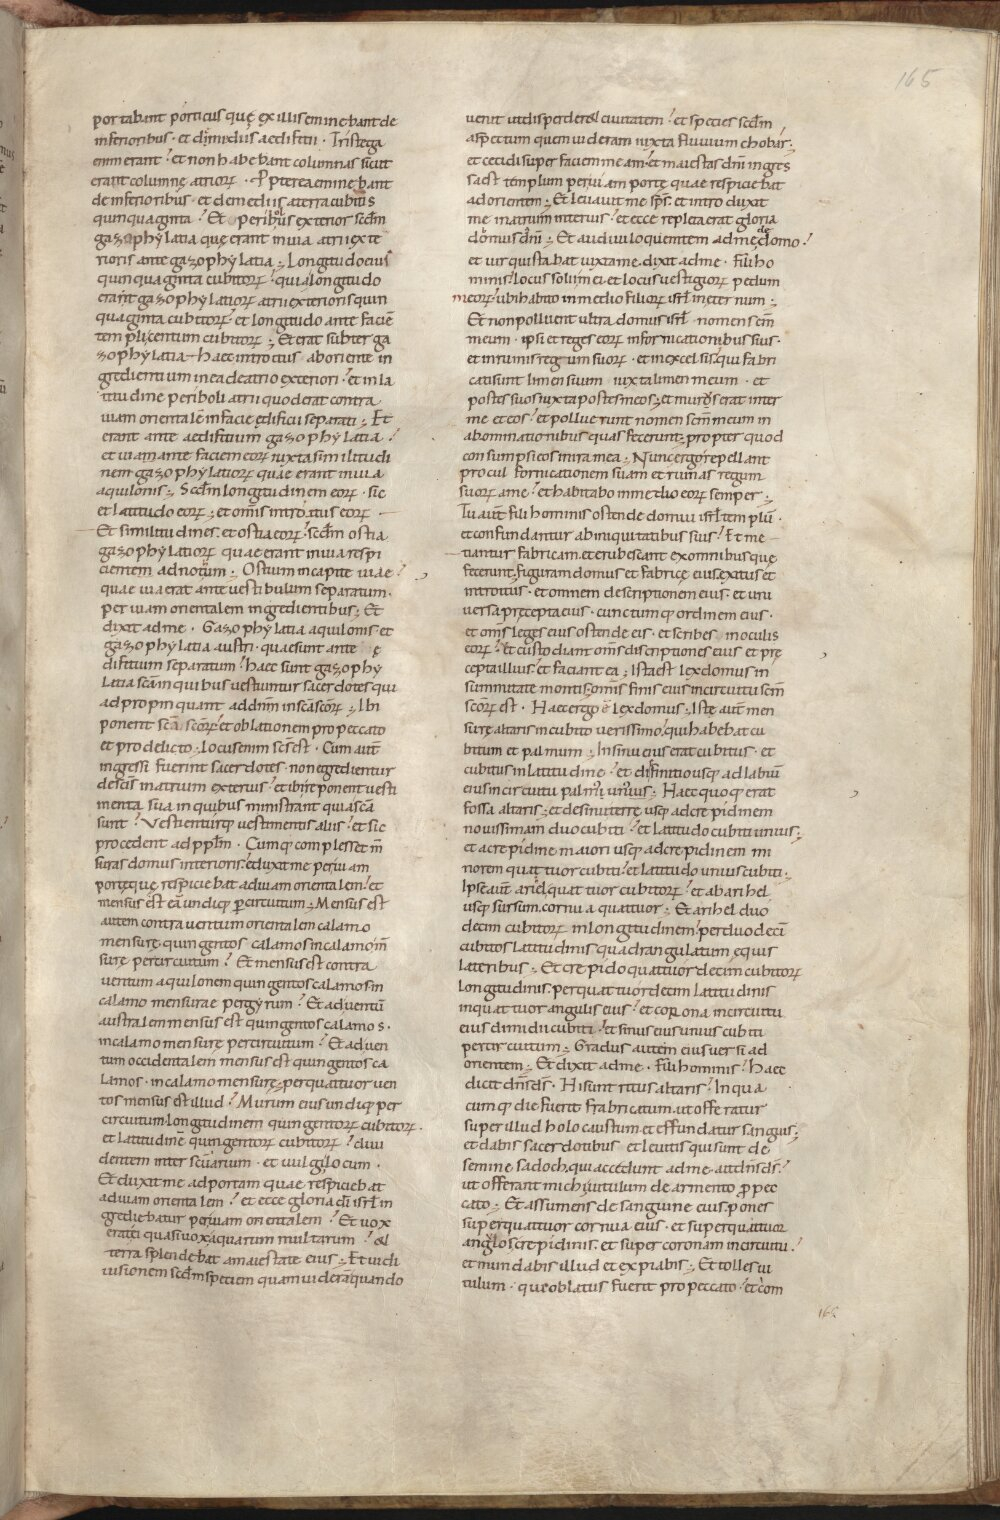 165
portabant porticus quę ex illis eminebant de
inferioribus · et dimidiis aedifitii · Tristega
enim erant ? et non habebant columnas sicut
erant columnę atriorꝝ · Pꝓterea eminebant
de inferioribus · et de mediis a terra cubitis
quinquaginta ? Et peribolus exterior scdm̄
gazophylatia quę erant in uia atrii exte
rioris ante gazophylatia ; Longitudo eius
quinquaginta cubitorꝝ ? quia longitudo
erant gazophylatiorꝝ atrii exterioris quin
quaginta cubitorꝝ ? et longitudo ante faciē
templi centum cubitorꝝ ; Et erat subter ga
zophylatia haec introitus ab oriente in
gredientium in ea de atrio exteriori ? et in la
titudine periboli atrii quod erat contra
uiam orientalē in facie ędificii separati ; Et
erant ante aedifitium gazophylatia ?
et uia ante faciem eorꝝ iuxta similitudi
nem gazophylatiorꝝ quae erant in uia
aquilonis ; Scdm̄ longitudinem eorꝝ · sic
et latitudo eorꝝ ; et omīs introitus eorꝝ
Et similitudines · et ostia eorꝝ · scdm̄ ostia
gazophylatiorꝝ quae erant in uia respi
cientem ad notum ; Ostium in capite uiae ?
quae uia erat ante uestibulum separatum ·
per uiam orientalem ingredientibus ; Et
dixit ad me · Gazophylatia aquilonis et
gazophylatia austri · quae sunt ante ę
difitium separatum ? haec sunt gazophy
latia scā in quibus uestiuntur sacerdotes qui
ad propinquant ad dnm̄ in scā scorꝝ ; Ibi
ponent scā scorꝝ ? et oblationem pro peccato
et pro delicto ; locus enim scs est · Cum autē
ingressi fuerint sacerdotes · non egredientur
de scis in atrium exterius ? et ibi reponent uesti
menta sua in quibus ministrant quia scā
sunt ? Vestienturq; uestimentis aliis ? et sic
procedent ad pplm̄ · Cumq; complesset m̄
suras domus interioris · eduxit me per uiam
portę quę respiciebat ad uiam orientalem ? et
mensus est eā undiq; ꝑ circuitum ; Mensus est
autem contra uentum orientalem calamo
mensurę quingentos calamos in calamo m̄
surę per circuitum ? Et mensus est contra
uentum aquilonem quingentos calamos in
calamo mensurae per gyrum ? Et ad uentū
australem mensus est quingentos calamos ·
in calamo mensurę per circuitum ? Et ad uen
tum occidentalem mensus est quingentos ca
lamos · in calamo mensurę ; per quattuor uen
tos mensus est illud ? Murum eius undiq; per
circuitum longitudinem quingentorꝝ cubitorꝝ ·
et latitudinē quingentorꝝ cubitorꝝ ? diui
dentem inter scūarium · et uulgi locum ·
Et duxit me ad portam quae respiciebat
ad uiam orientalem ? et ecce gloria di isrl in
grediebatur per uiam orientalem ? Et uox
erat ei quasi uox aquarum multarum ? &
terra splendebat a maiestate eius ; Et uidi
uisionem scdm̄ speciem quam uiderā quando
uenit ut disperderet ciuitatem ? et species scdm̄
aspectum quem uideram iuxta fluuium chobar ·
et cecidi super faciem meam ? et maiestas dnī ingres
sa est templum per uiam portę quae respiciebat
ad orientem ; Et leuauit me sps̄ · et introduxit
me in atrium interius ? et ecce repleta erat gloria
domus dnī ; Et audiui loquentem ad me de domo ?
et uir qui stabat iuxta me · dixit ad me · fili ho
minis · locus solii mei · et locus uestigiorꝝ pedum
meorꝝ ? ubi habito in medio filiorꝝ isrl in eternum ;
Et non polluent ultra domus isrl · nomen scm̄
meum · ipsi et reges eorꝝ in fornicationibus suis ·
et in ruinis regum suorꝝ · et in excelsis · qui fabri
cati sunt limen suum iuxta limen meum · et
postes suos iuxta postes meos ; et murus erat inter
me et eos ? et polluerunt nomen scm̄ meum in
abominationibus quas fecerunt ; propter quod
consumpsi eos in ira mea ; Nunc ergo repellant
procul fornicationem suam et ruinas regum
suorꝝ a me ? et habitabo in medio eorꝝ semper ;
Tu autē fili hominis ostende domui isrl templū ·
et confundantur ab iniquitatibus suis ? Et me
tiantur fabricam · et erubescant ex omnibus quę
fecerunt ; figuram domus et fabricę eius · exitus et
introitus · et omnem descriptionem eius · et uni
uersa pręcepta eius · cunctumq; ordinem eius ·
et omīs leges eius ostende eis · et scribes in oculis
eorꝝ ? et custodiant omīs discriptiones eius et prę
cepta illius ? et faciant ea ; Ista est lex domus in
summitate montis ; omnis finis eius in circuitu scm̄
scorꝝ est · Haec ergo ē lex domus ; Iste autē men
surę altaris in cubito uerissimo ? qui habebat cu
bitum et palmum ; In sinu eius erat cubitus · et
cubitus in latitudine ? et difinitio usq; ad labiū
eius in circuitu palmi unius ; Haec quoq; erat
fossa altaris ; et de sinu terrę usq; ad crepidinem
nouissimam duo cubiti ? et latitudo cubiti unius ;
et a crepidine maiori usq; ad crepidinem mi
norem quattuor cubiti ? et latitudo unius cubiti ;
Ipse autē ariel quattuor cubitorꝝ ? et ab arihel
usq; sursum · cornua quattuor ; Et arihel duo
decim cubitorꝝ in longitudinem ? per duodecī
cubitos latitudinis quadrangulatum ęquis
lateribus ; Et crepido quattuordecim cubitorꝝ
longitudinis · per quattuordecim latitudinis
in quattuor angulis eius ? et corona in circuitu
eius dimidii cubiti ? et sinus eius unius cubiti
per circuitum ; Gradus autem eius uersi ad
orientem ; Et dixit ad me · Fili hominis ? Haec
dicit dns̄ ds̄ · Hi sunt ritus altaris ? In qua
cumq; die fuerit fabricatum · ut offeratur
super illud holocaustum et effundatur sanguis ;
et dabis sacerdotibus et leuitis qui sunt de
semine sadoch · qui accedunt ad me · ait dns̄ ds̄ ?
ut offerant michi uitulum de armento ꝓ pec
cato ; Et assumens de sanguine eius · pones
super quattuor cornua eius · et super quattuor
angulos crepidinis · et super coronam in circuitu ?
et mundabis illud et expiabis ; Et tolles ui
tulum · qui oblatus fuerit pro peccato ? et com
165